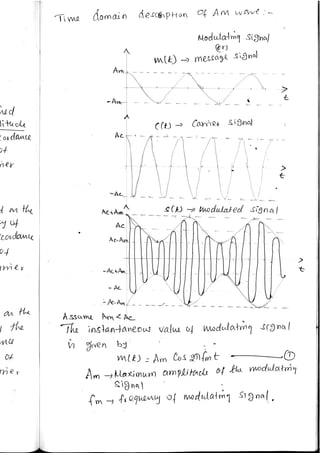 Time domain description of Am wave :-
Modulating signal
(or)
m(t) → message signal
Am
-Am
t
c(t) → Carrier signal
Ac
-Ac
t
s(t) → modulated signal
Ac+Am
Ac
Ac-Am
-Ac+Am
-Ac
-Ac-Am
t
Assume Am < Ac
The instantaneous value of modulating signal
is given by
m(t) = Am Cos 2πfmt — ①
Am → Maximum amplitude of the modulating
signal
fm → frequency of modulating signal.